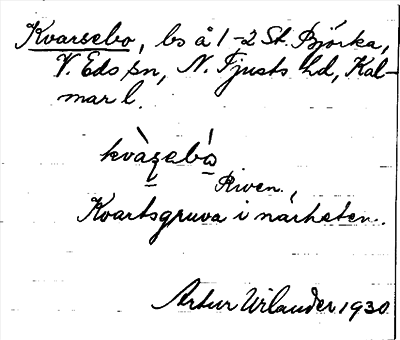 Kvarsebo, bs å 1-2 St. Björka,
V. Eds sn, N. Tjusts hd, Kal-
mar l.
kvàʐebó
Riven.,
Kvartsgruva i närheten.
Artur Wilander 1930